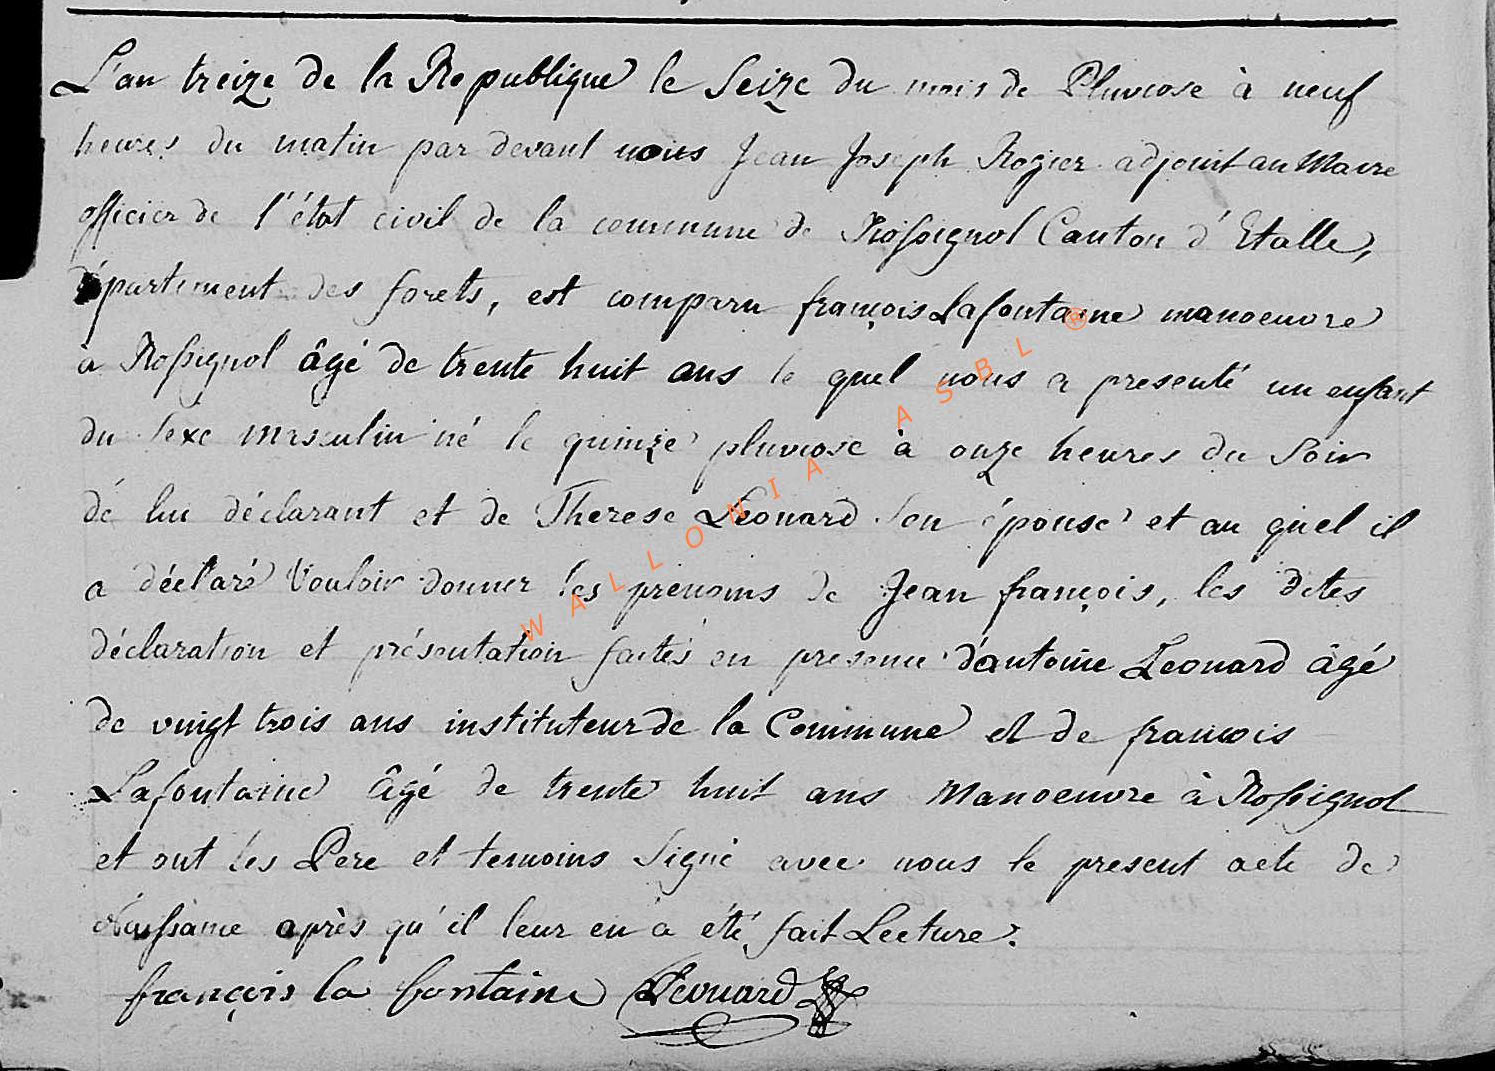 L'an treize de la Republique le Seize du mois de Pluviose à neuf
heures du matin par devant nous Jean Joseph Rogier adjoint au Maire
officier de l'état civil de la commune de Rossignol Canton d'Etalle,
département des forets, est comparu françois Lafontaine manoeuvre
a Rossignol âgé de trente huit ans le quel nous a presenté un enfant
du Sexe masculin né le quinze pluviose à onze heures du Soir
de lui déclarant et de Therese Léonard Son épouse et au quel il
a déclaré Vouloir donner les prenoms de Jean françois, les dites
déclaration et présentation faites en presence d'antoine Leonard âgé
de vingt trois ans instituteur de la Commune et de francois
Lafontaine âgé de trente huit ans Manoeuvre à Rossignol
et ont les Pere et temoins Signé avec nous le present acte de
Naissance après qu'il leur en a été fait Lecture.
françois la fontaine Leonard
WALLONIA ASBL ®